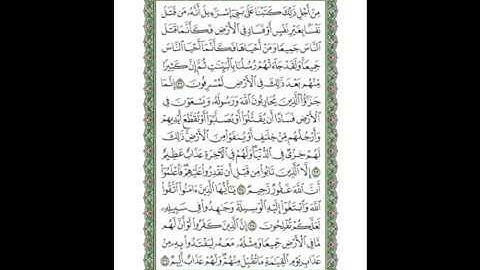 مِنْ أَجْلِ ذَٰلِكَ كَتَبْنَا عَلَىٰ بَنِىٓ إِسْرَٰٓءِيلَ أَنَّهُۥ مَن قَتَلَ
نَفْسًۢا بِغَيْرِ نَفْسٍ أَوْ فَسَادٍ فِى ٱلْأَرْضِ فَكَأَنَّمَا قَتَلَ
ٱلنَّاسَ جَمِيعًا وَمَنْ أَحْيَاهَا فَكَأَنَّمَآ أَحْيَا ٱلنَّاسَ
جَمِيعًا ۚ وَلَقَدْ جَآءَتْهُمْ رُسُلُنَا بِٱلْبَيِّنَٰتِ ثُمَّ إِنَّ كَثِيرًا
مِّنْهُم بَعْدَ ذَٰلِكَ فِى ٱلْأَرْضِ لَمُسْرِفُونَ ٣٢ إِنَّمَا
جَزَٰٓؤُا۟ ٱلَّذِينَ يُحَارِبُونَ ٱللَّهَ وَرَسُولَهُۥ وَيَسْعَوْنَ فِى
ٱلْأَرْضِ فَسَادًا أَن يُقَتَّلُوٓا۟ أَوْ يُصَلَّبُوٓا۟ أَوْ تُقَطَّعَ أَيْدِيهِمْ
وَأَرْجُلُهُم مِّنْ خِلَٰفٍ أَوْ يُنفَوْا۟ مِنَ ٱلْأَرْضِ ۚ ذَٰلِكَ
لَهُمْ خِزْىٌ فِى ٱلدُّنْيَا ۖ وَلَهُمْ فِى ٱلْـَٔاخِرَةِ عَذَابٌ عَظِيمٌ
٣٣ إِلَّا ٱلَّذِينَ تَابُوا۟ مِن قَبْلِ أَن تَقْدِرُوا۟ عَلَيْهِمْ ۖ فَٱعْلَمُوٓا۟
أَنَّ ٱللَّهَ غَفُورٌ رَّحِيمٌ ٣٤ يَٰٓأَيُّهَا ٱلَّذِينَ ءَامَنُوا۟ ٱتَّقُوا۟
ٱللَّهَ وَٱبْتَغُوٓا۟ إِلَيْهِ ٱلْوَسِيلَةَ وَجَٰهِدُوا۟ فِى سَبِيلِهِۦ
لَعَلَّكُمْ تُفْلِحُونَ ٣٥ إِنَّ ٱلَّذِينَ كَفَرُوا۟ لَوْ أَنَّ لَهُم
مَّا فِى ٱلْأَرْضِ جَمِيعًا وَمِثْلَهُۥ مَعَهُۥ لِيَفْتَدُوا۟ بِهِۦ مِنْ
عَذَابِ يَوْمِ ٱلْقِيَٰمَةِ مَا تُقُبِّلَ مِنْهُمْ ۖ وَلَهُمْ عَذَابٌ أَلِيمٌ ٣٦